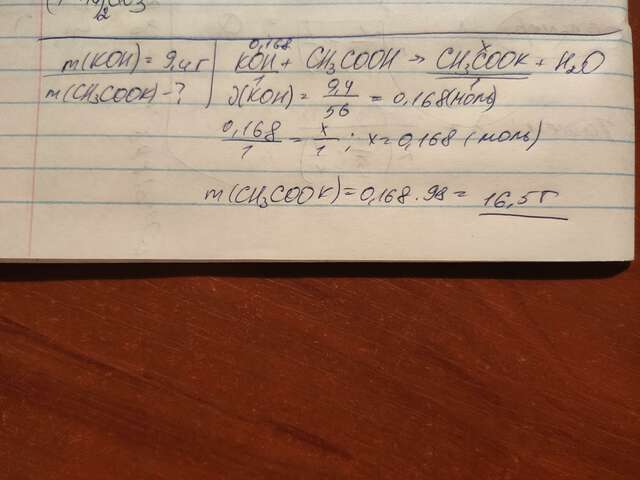 2
m(KOH) = 9,4г
m(CH₃COOK) - ?
0,168 x
KOH + CH₃COOH → CH₃COOK + H₂O
1 1
ν(KOH) = 9,4/56 = 0,168 (моль)
0,168/1 = x/1 ; x = 0,168 (моль)
m(CH₃COOK) = 0,168 · 98 = 16,5г